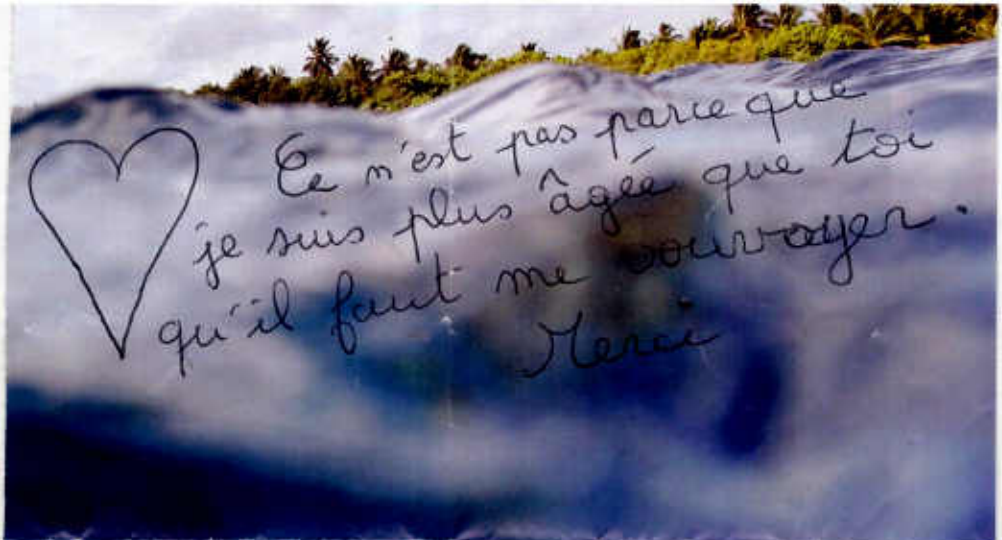 Ce n'est pas parce que
je suis plus âgée que toi
qu'il faut me vouvoyer.
Merci